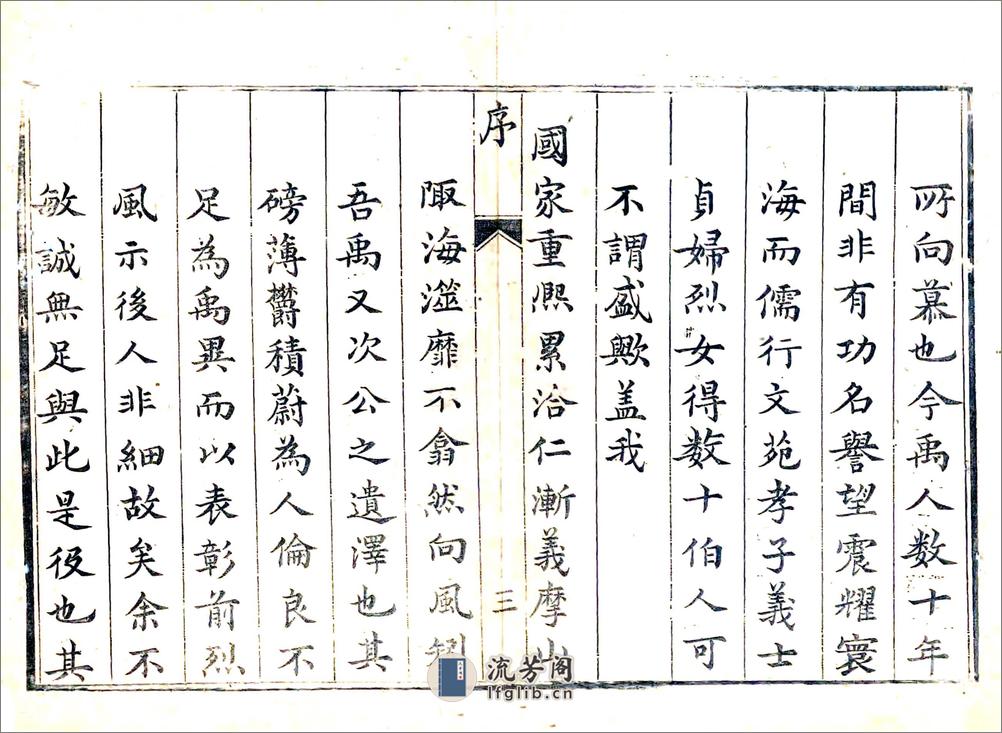 所向慕也今禹人数十年
間非有功名譽望震耀寰
海而儒行文苑孝子義士
貞婦烈女得数十伯人可
不謂盛歟盖我
國家重熈累洽仁漸義摩山
序
三
陬海澨靡不翕然向風矧
吾禹又次公之遺澤也其
磅薄欝積蔚為人倫良不
足為禹異而以表彰前烈
風示後人非細故矣余不
敏誠無足與此是役也其
流芳阁
lfglib.cn